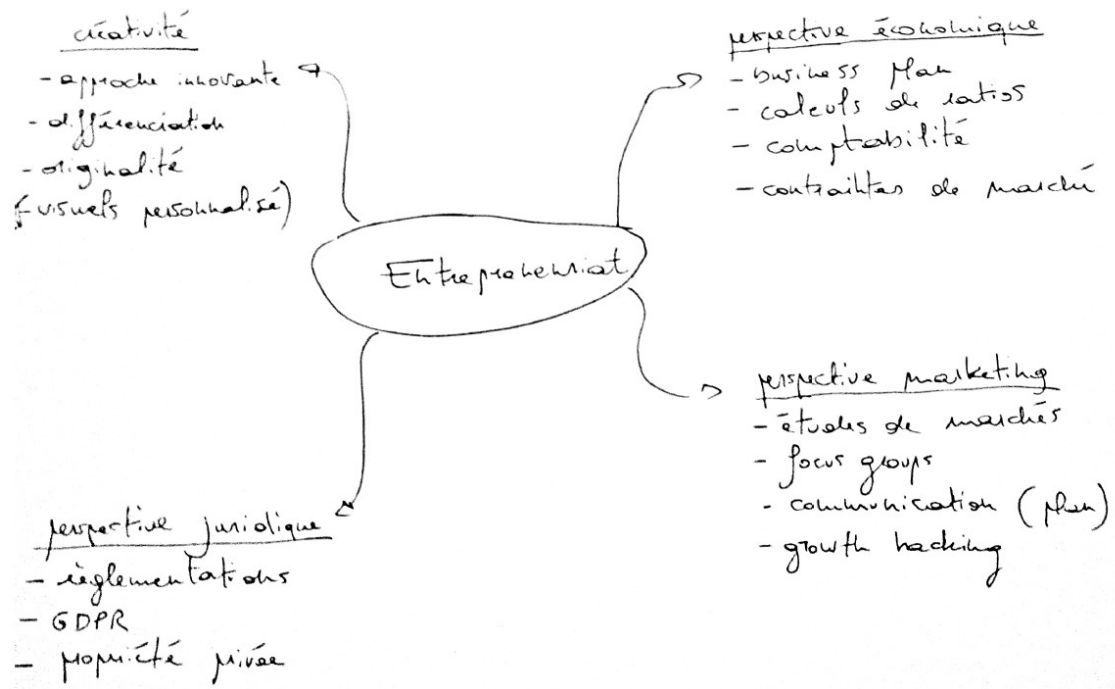 créativité
- approche innovante
- différenciation
- originalité
(visuels personnalisé)
perspective économique
- business plan
- calculs de ratios
- comptabilité
- contraintes de marché
Entrepreneuriat
perspective marketing
- études de marchés
- focus groups
- communication (plan)
- growth hacking
perspective juridique
- règlementations
- GDPR
- propriété privée